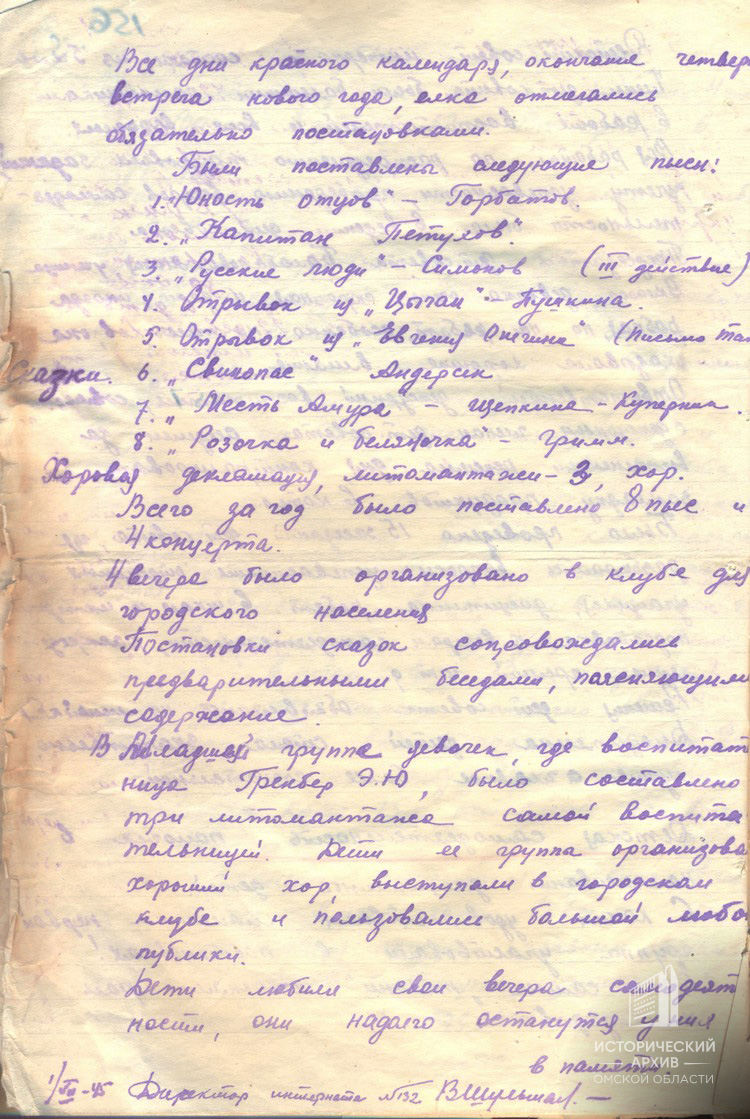 156
Все дни красного календаря, окончание четвер
встреча нового года, елка отмечались
обязательно постановками.
Были поставлены следующие пьесы:
1. „Юность отцов" – Горбатов.
2. „Капитан Петухов".
3. „Русские люди" – Симонов (III действие)
4. Отрывок из „Цыган" – Пушкина.
5. Отрывок из „Евгения Онегина" (письмо Тат
Сказки. 6. „Свинопас" Андерсен
7. „Месть Амура" – Щепкина-Куперник.
8. „Розочка и беляночка" – Гримм.
Хоровая декламация, литомонтажи – 3, хор.
Всего за год было поставлено 8 пьес и
4 концерта.
4 вечера было организовано в клубе для
городского населения
Постановки сказок сопровождались
предварительными беседами, поясняющими
содержание.
В младшей группе девочек, где воспитат
ница Э.Ю, было составлено
три литомонтажа самой воспита
тельницей. Дети ее группа организова
хороший хор, выступали в городском
клубе и пользовались большой любо
публики.
Дети любили свои вечера самодеят
ности, они надолго останутся у них
в памяти.
1/VII-45 Директор интерната №132 В Шульман. –
ИСТОРИЧЕСКИЙ
АРХИВ
ОМСКОЙ ОБЛАСТИ